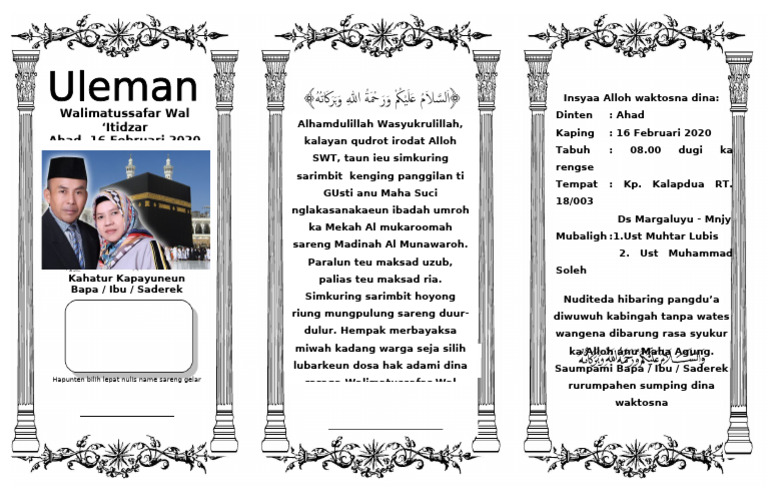 Uleman
Walimatussafar Wal
‘Itidzar
Ahad, 16 Februari 2020
Kahatur Kapayuneun
Bapa / Ibu / Saderek
Hapunten bilih lepat nulis name sareng gelar
﴿اَلسَّلاَمُ عَلَيْكُمْ وَرَحْمَةُ اللهِ وَبَرَكَاتُهُ﴾
Alhamdulillah Wasyukrulillah,
kalayan qudrot irodat Alloh
SWT, taun ieu simkuring
sarimbit kenging panggilan ti
GUsti anu Maha Suci
nglakasanakaeun ibadah umroh
ka Mekah Al mukaroomah
sareng Madinah Al Munawaroh.
Paralun teu maksad uzub,
palias teu maksad ria.
Simkuring sarimbit hoyong
riung mungpulung sareng duur-
dulur. Hempak merbayaksa
miwah kadang warga seja silih
lubarkeun dosa hak adami dina
Walimatussafar Wal
Insyaa Alloh waktosna dina:
Dinten : Ahad
Kaping : 16 Februari 2020
Tabuh : 08.00 dugi ka
rengse
Tempat : Kp. Kalapdua RT.
18/003
Ds Margaluyu - Mnjy
Mubaligh :1.Ust Muhtar Lubis
2. Ust Muhammad
Soleh
Nuditeda hibaring pangdu’a
diwuwuh kabingah tanpa wates
wangena dibarung rasa syukur
ka Alloh anu Maha Agung.
Saumpami Bapa / Ibu / Saderek
rurumpahen sumping dina
waktosna